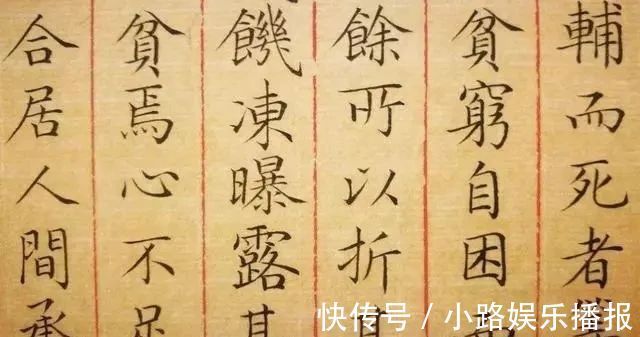 輔而死者
貧窮自困
餘所以折
饑凍曝露其
貧焉心不足
合居人間承
快传号 / 小路娱乐播报